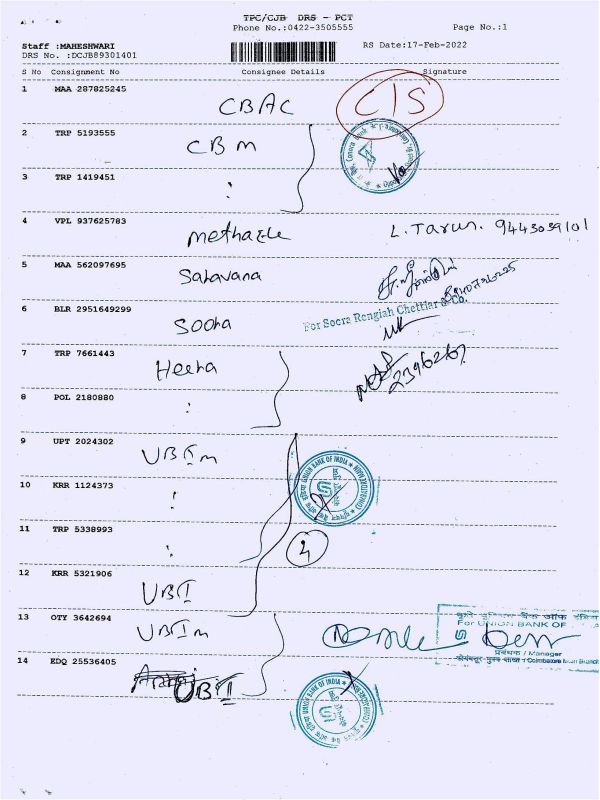 TPC/CJB DRS - PCT
Phone No.:0422-3505555
Page No.:1
Staff :MAHESHWARI
RS Date:17-Feb-2022
DRS No. :DCJB89301401
S No Consignment No Consignee Details Signature
1 MAA 287825245
CBAC CIS
2 TRP 5193555
CBM
3 TRP 1419451
4 VPL 937625783
L. Tarun. 9443039101
5 MAA 562097695
Saravana
6 BLR 2951649299
For Socra Rengiah Chettiar & Co.
Sooha
7 TRP 7661443
Heera
8 POL 2180880
9 UPT 2024302
UBIM
UNION BANK OF INDIA
10 KRR 1124373
11 TRP 5338993
4
12 KRR 5321906
UBI
13 OTY 3642694
For UNION BANK OF
UBIM
प्रबंधक / Manager
14 EDQ 25536405
UBI
UNION BANK OF INDIA